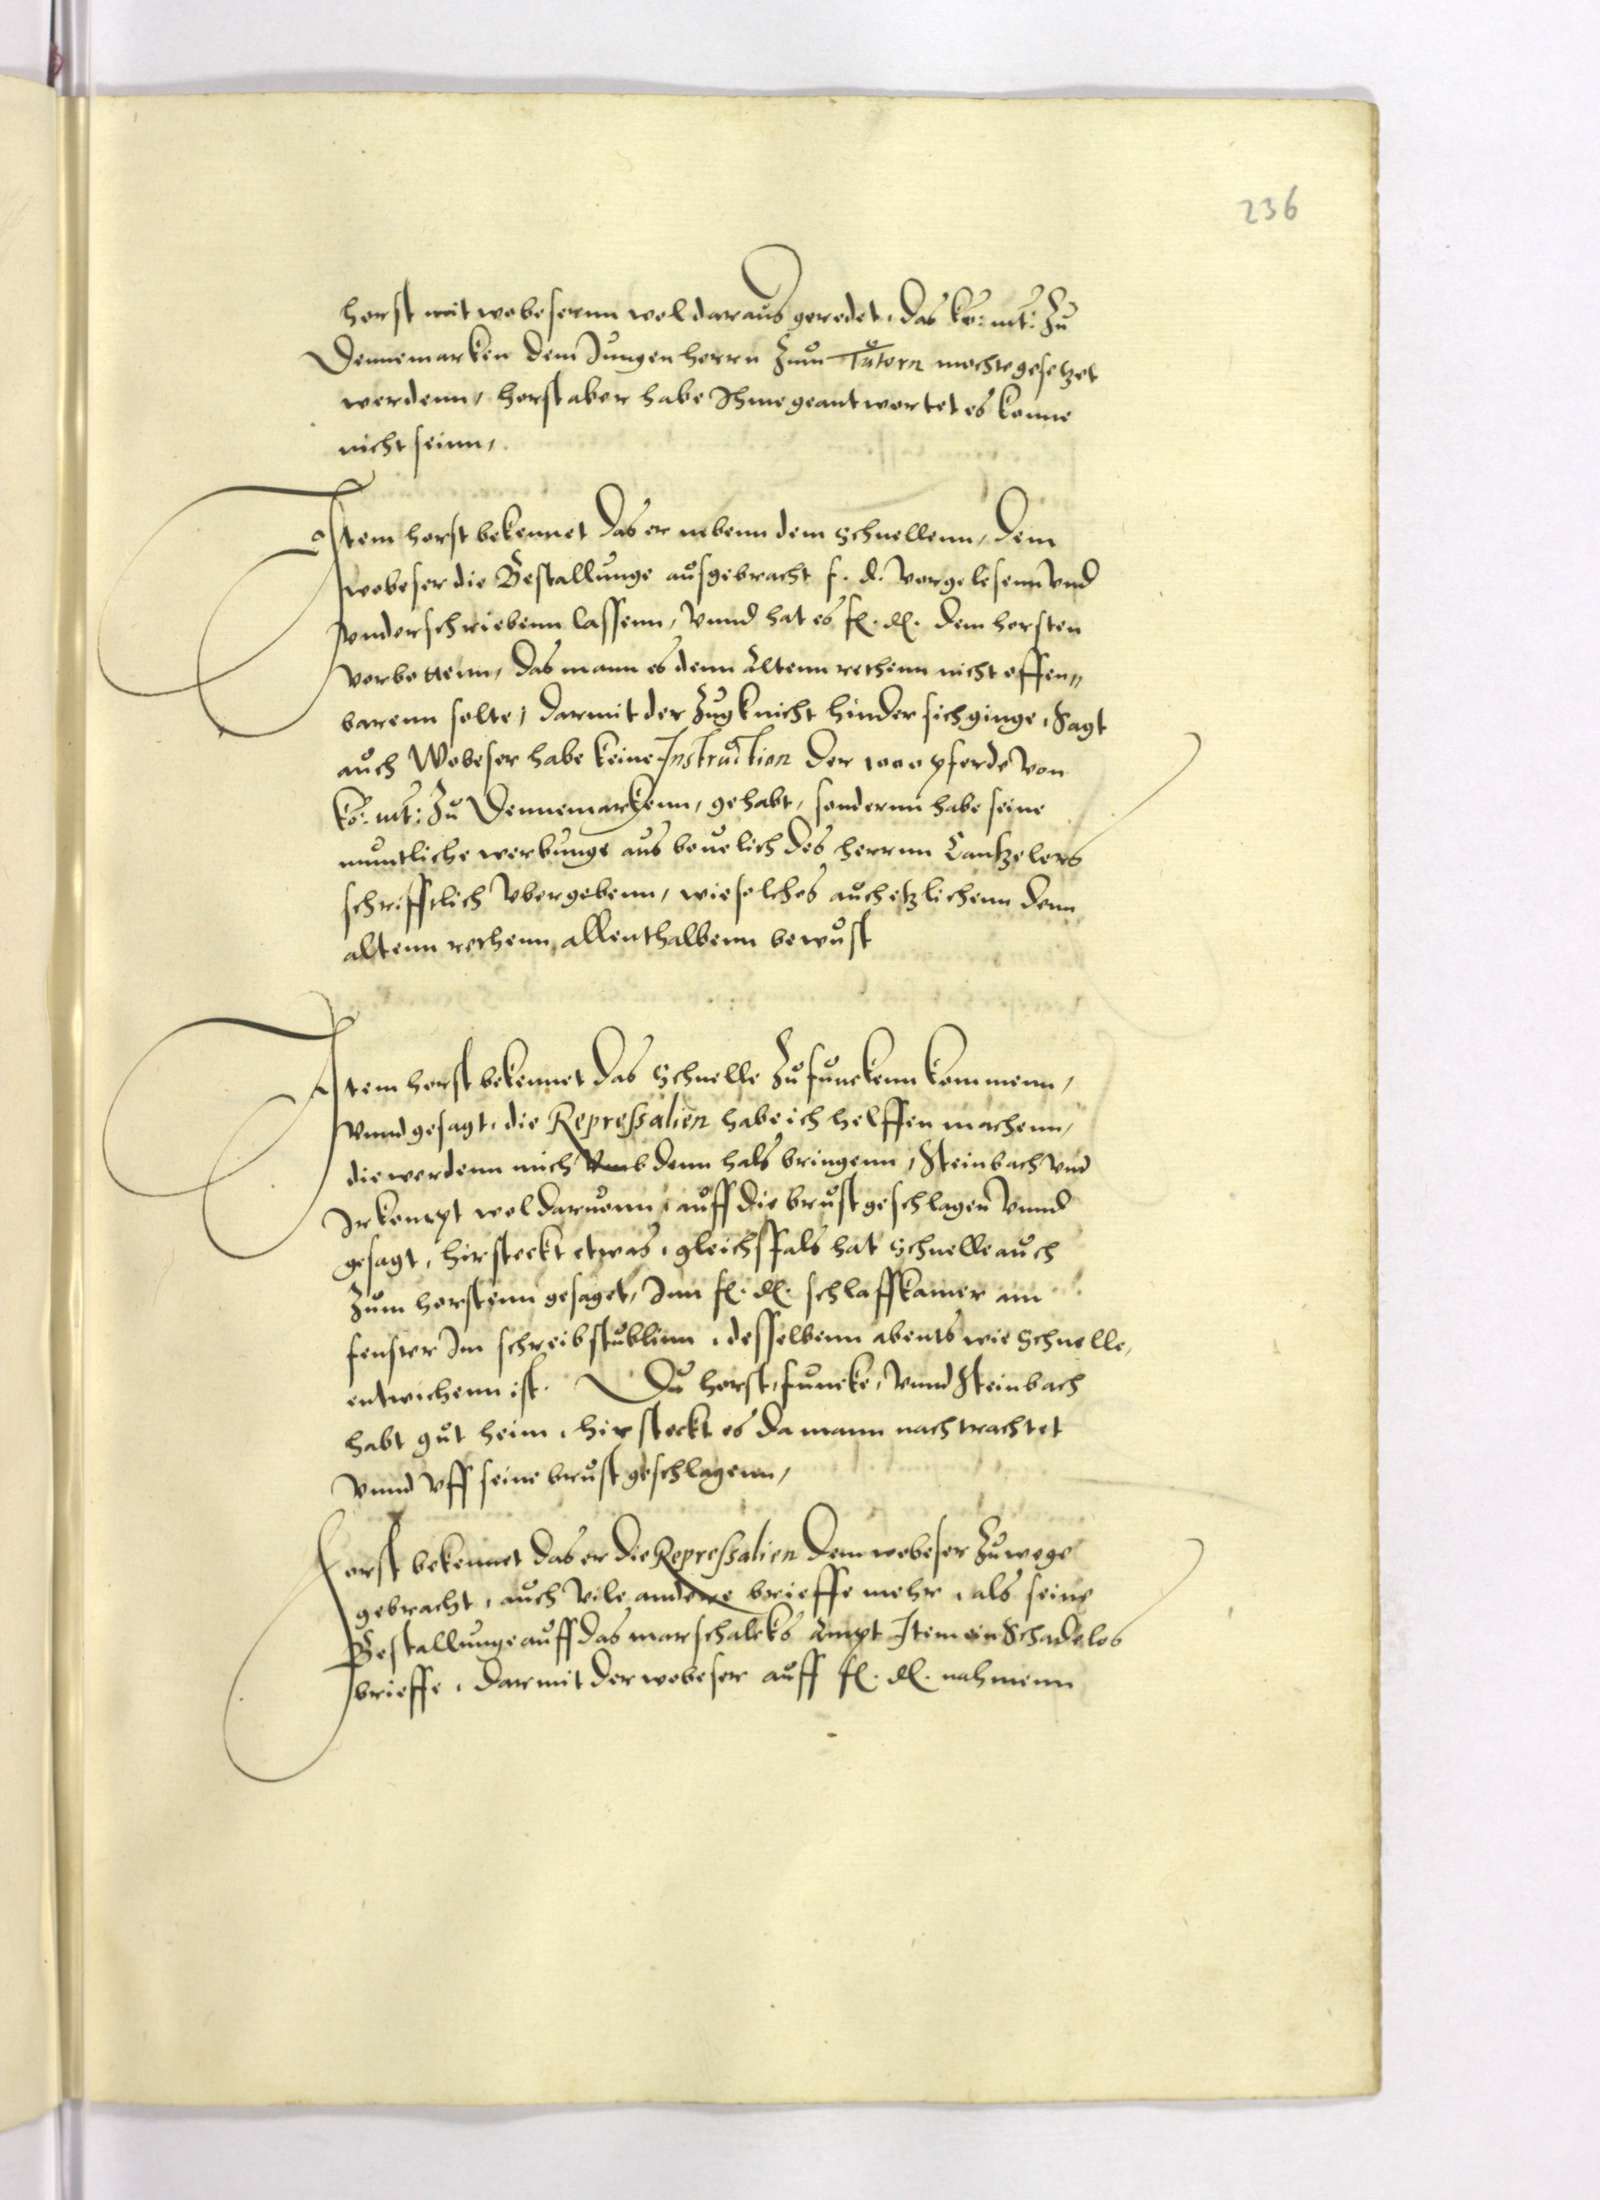 236
horst mit wobesernn wol daraus geredet, das ko: mt: Zu
Dennemarken dem Jungen herrn Zum Tutorn mochte gesetzet
werdenn, horst aber habe Ihme geantwortet es konne
nicht seinn,
Item horst bekennet das er nebenn dem Schnellenn, dem
wobeser die Bestallunge ausgebracht f. d. vorgelesenn vnd
vnderschriebenn lassenn, vnnd hat es fl. dl. dem horsten
verbottenn, das mann es denn Altenn rethenn nicht offen„
barenn solte, darmit der Zugk nicht hinder sich ginge, Sagt
auch Wobeser habe keine Instruction der 1000 pferde von
ko: mt: Zu Dennemarkenn, gehabt, sondernn habe seine
muntliche werbunge aus beuelich des herrnn Cantzelers
schrifftlich vbergebenn, wie solches auch etzlichenn denn
altenn rethenn allenthalbenn bewust
Item horst bekennet das Schnelle Zu funckenn kommenn,
vnnd gesagt, die Repressalien habe ich helffen machenn,
die werdenn mich vmb denn hals bringenn, Steinbach vnd
Ir kompt wol daruonn, auff die brust geschlagen vnnd
gesagt, hir steckt etwas, gleichffals hat Schnelle auch
Zum horstenn gesaget, Inn fl. dl. schlaffkamer am
fenster Im schreibstublinn, desselbenn abents wie Schnelle,
entwichenn ist. Du horst, funcke, vnnd Steinbach
habt gut heim, hir steckt es da mann nach trachtet
vnnd vff seine brust geschlagenn,
Horst bekennet das er die Repressalien dem wobeser Zuwege
gebracht, auch vile andere brieffe mehr, als seine
Bestallunge auff das marschalcks Ampt Item ein Schadelos
brieffe, darmit der wobeser auff fl. dl. nahmenn